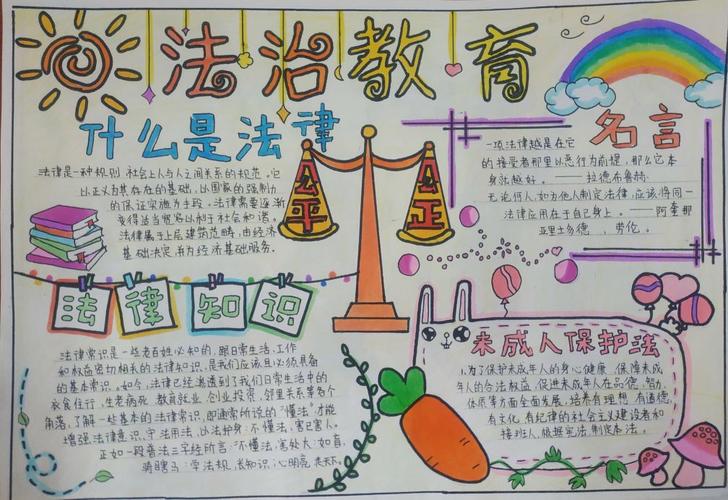 法治教育
什么是法律
法律是一种规则 社会上人与人之间关系的规范。它
以正义为其存在的基础，以国家的强制力
的保证实施为手段。法律需要逐渐
变得适当宽容以利于社会和谐。
法律属于上层建筑范畴，由经济
基础决定，并为经济基础服务。
公平
公正
名言
一项法律越是在它
的接受者那里以恶行为前提，那么它本
身就越好。——拉德布鲁赫
无论何人，如为他人制定法律，应该将同一
法律应用在于自己身上。——阿奎那
亚里士多德、劳伦。
法律知识
法律常识是一些老百姓必知的，跟日常生活、工作
和权益密切相关的法律知识，是我们应该且必须具备
的基本常识。如今，法律已经渗透到了我们日常生活中的
衣食住行，生老病死、教育就业、创业投资、邻里关系等各个
角落，了解一些基本的法律常识，即通常所说的“懂法”，才能
增强法律意识，守法用法，以法护身：不懂法，害己害人。
正如一段普法三字经所言：不懂法，害处大；如盲，
骑瞎马：学法规，长知识；心明亮 走天下。
未成人保护法
为了保护未成年人的身心健康，保障未成
年人的合法权益，促进未成年人在品德、智力、
体质等方面全面发展，培养有理想、有道德、
有文化、有纪律的社会主义建设者和
接班人，根据宪法，制定本法。